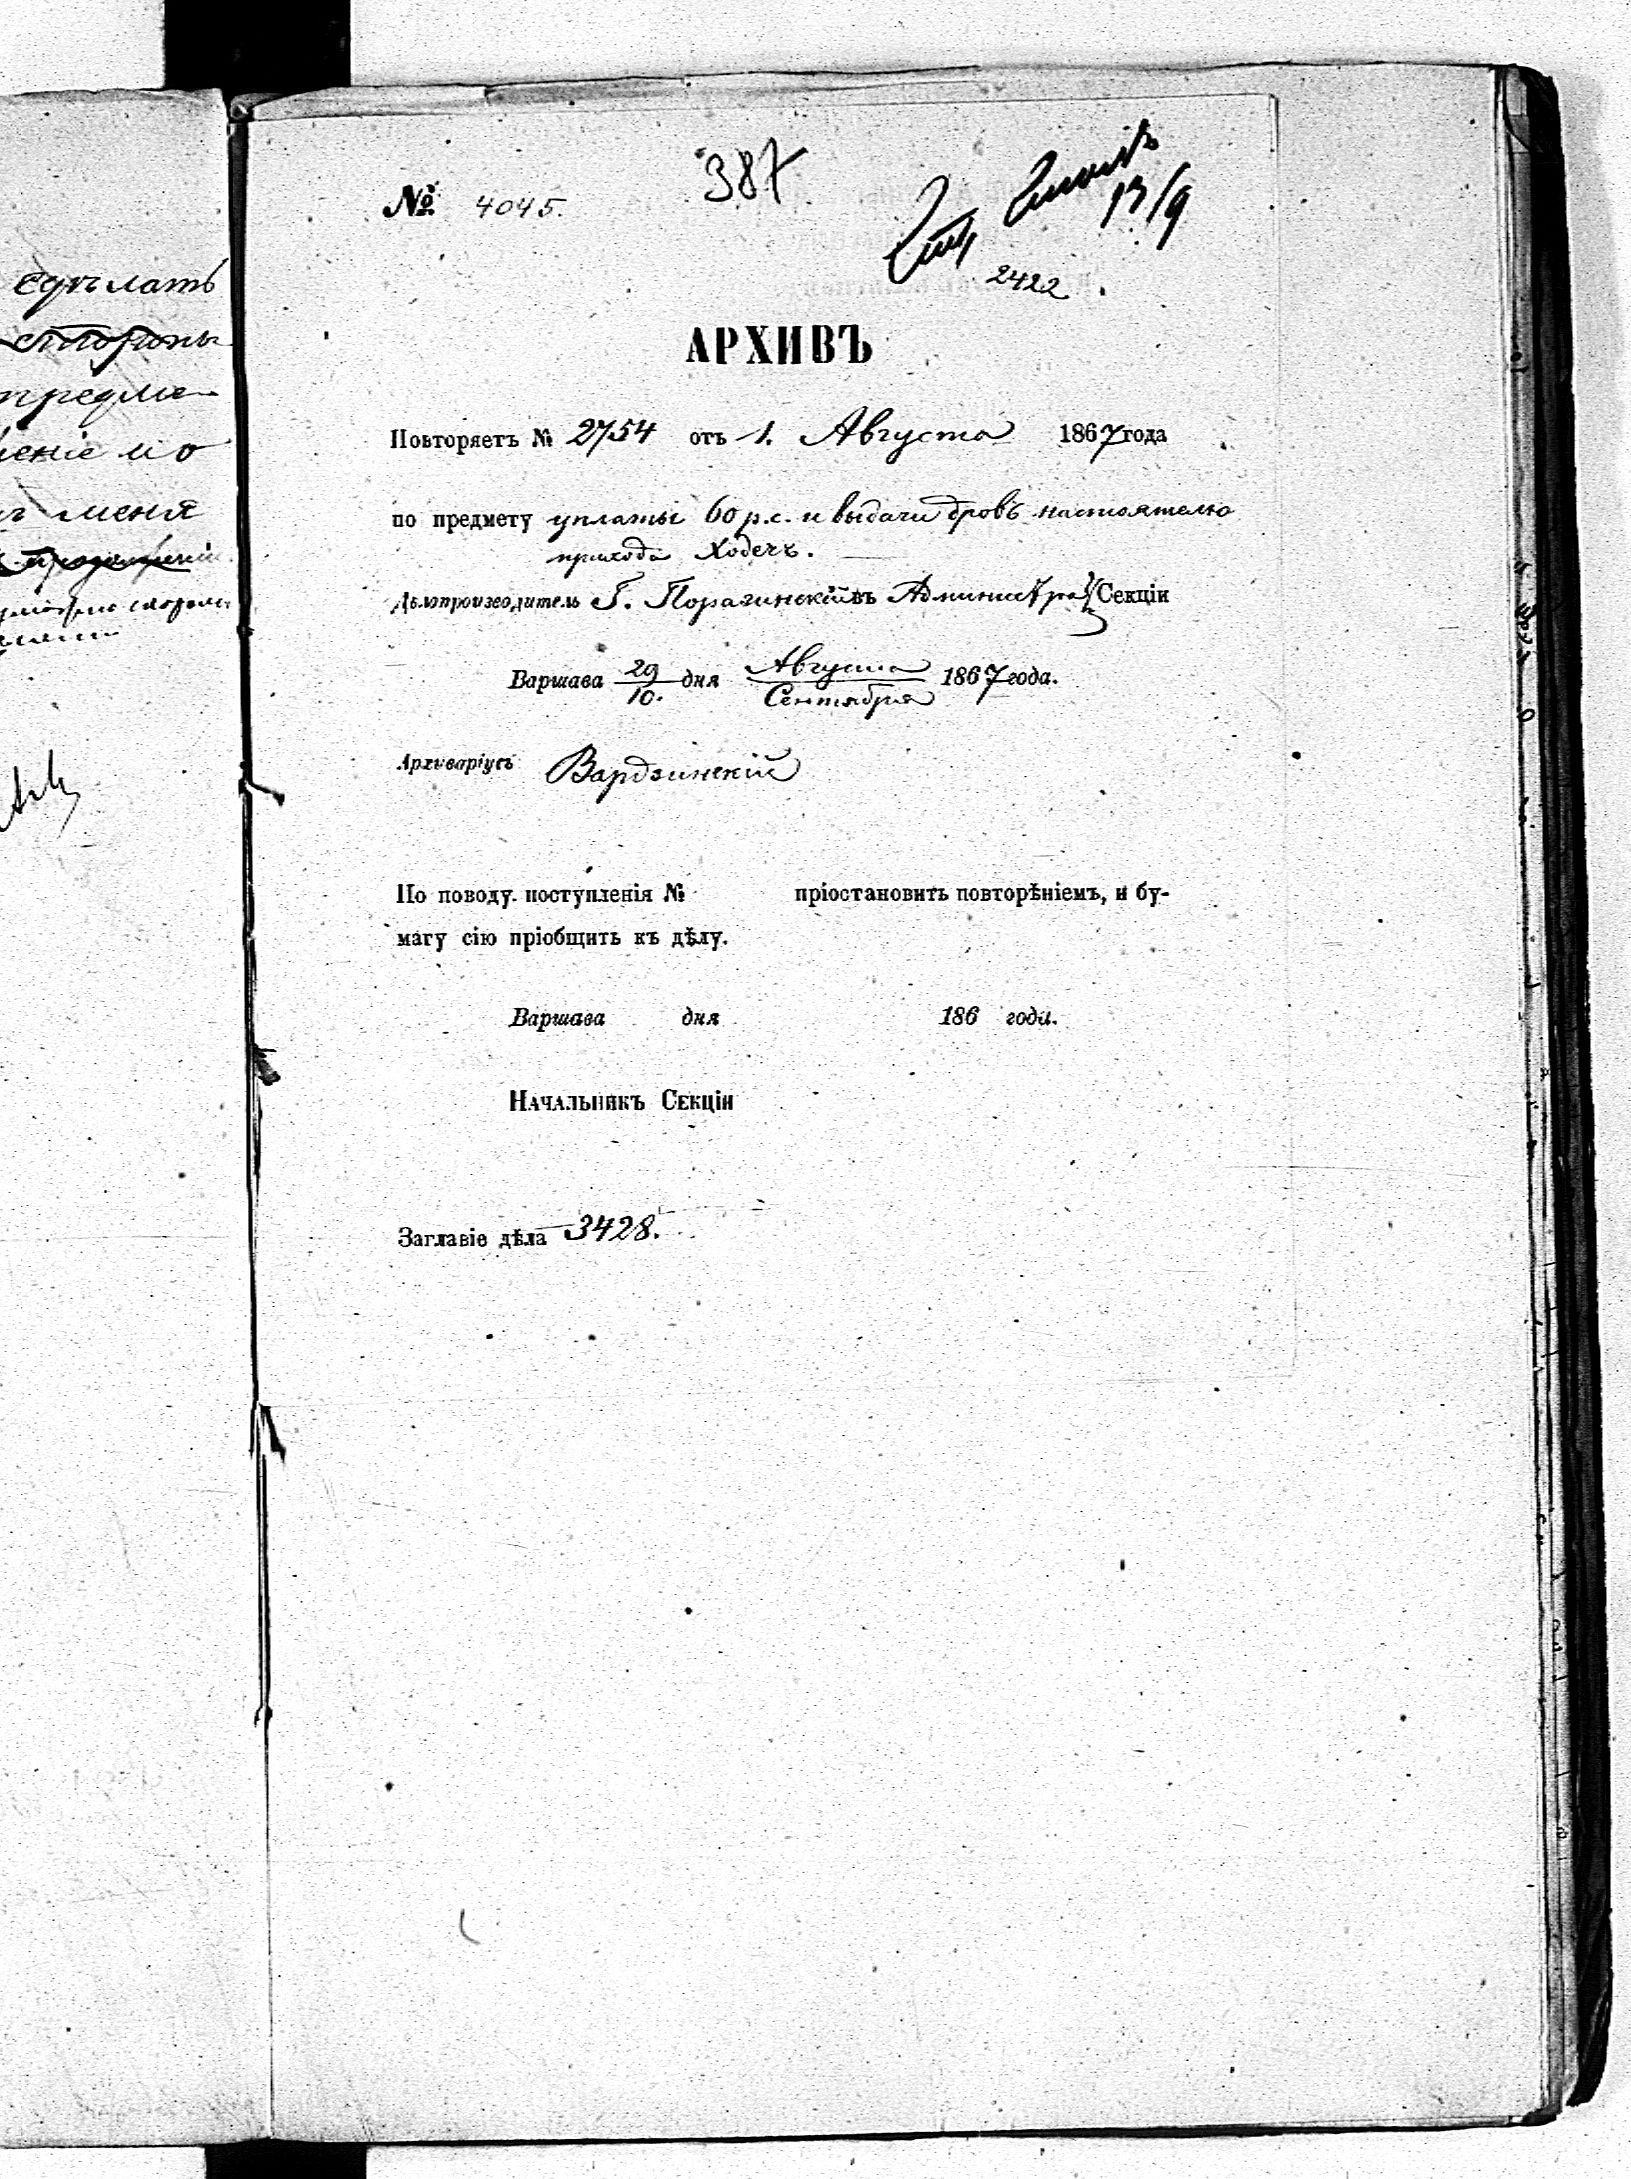 сдѣлать
стороны
предме
еніе мо
меня
387
№ 4045.
13/9
2422
АРХИВЪ
Повторяетъ № 2754 отъ 1. Августа 1867 года
по предмету уплаты 60 р.с. и выдачи дровъ настоятелю
прихода Ходечъ.
Дѣлопроизводитель Г. Поразинскій въ Администра Секціи
Варшава 29/10. дня Августа/Сентября 1867 года.
Архиваріусъ Вардзинскій
По поводу поступленія № пріостановить повторѣніемъ, и бу-
магу сію пріобщить къ дѣлу.
Варшава дня 186 года.
Начальникъ Секціи
Заглавіе дѣла 3428.